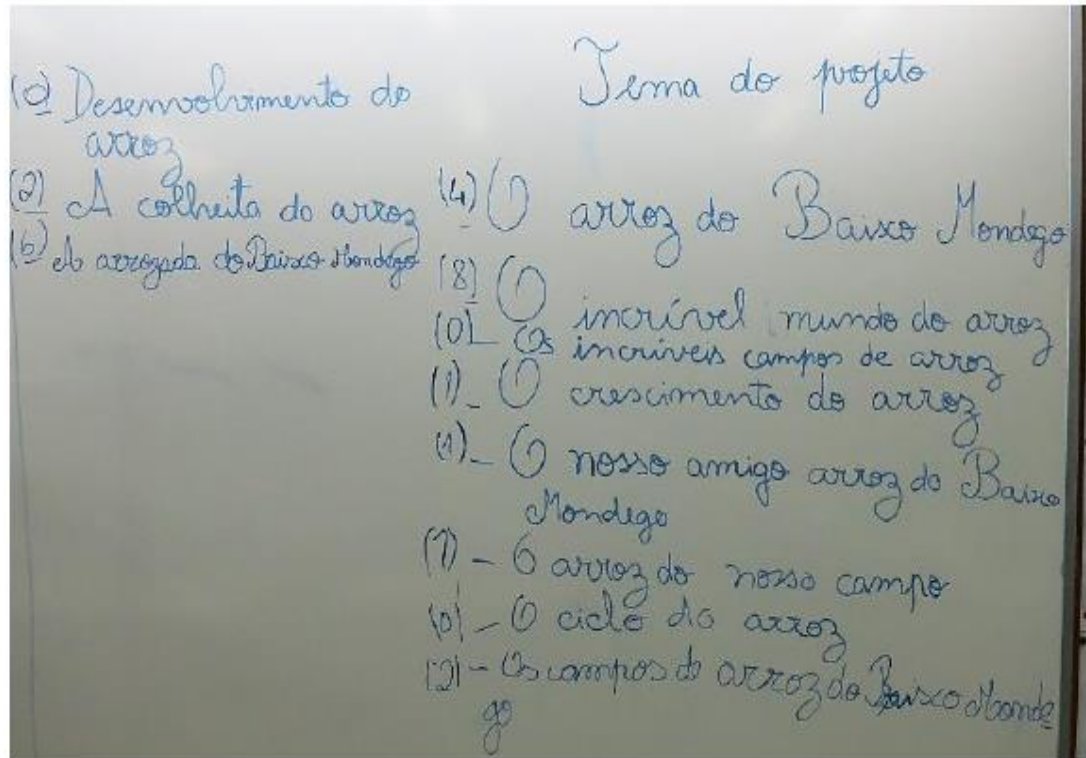 Tema do projeto
(0) Desenvolvimento do
arroz
(2) A colheita do arroz
(6) A arrozada do Baixo Mondego
(4) O arroz do Baixo Mondego
(8) O incrível mundo do arroz
(0) - Os incríveis campos de arroz
(1) - O crescimento do arroz
(1) - O nosso amigo arroz do Baixo
Mondego
(7) - O arroz do nosso campo
(0) - O ciclo do arroz
(2) - Os campos de arroz do Baixo Monde
go